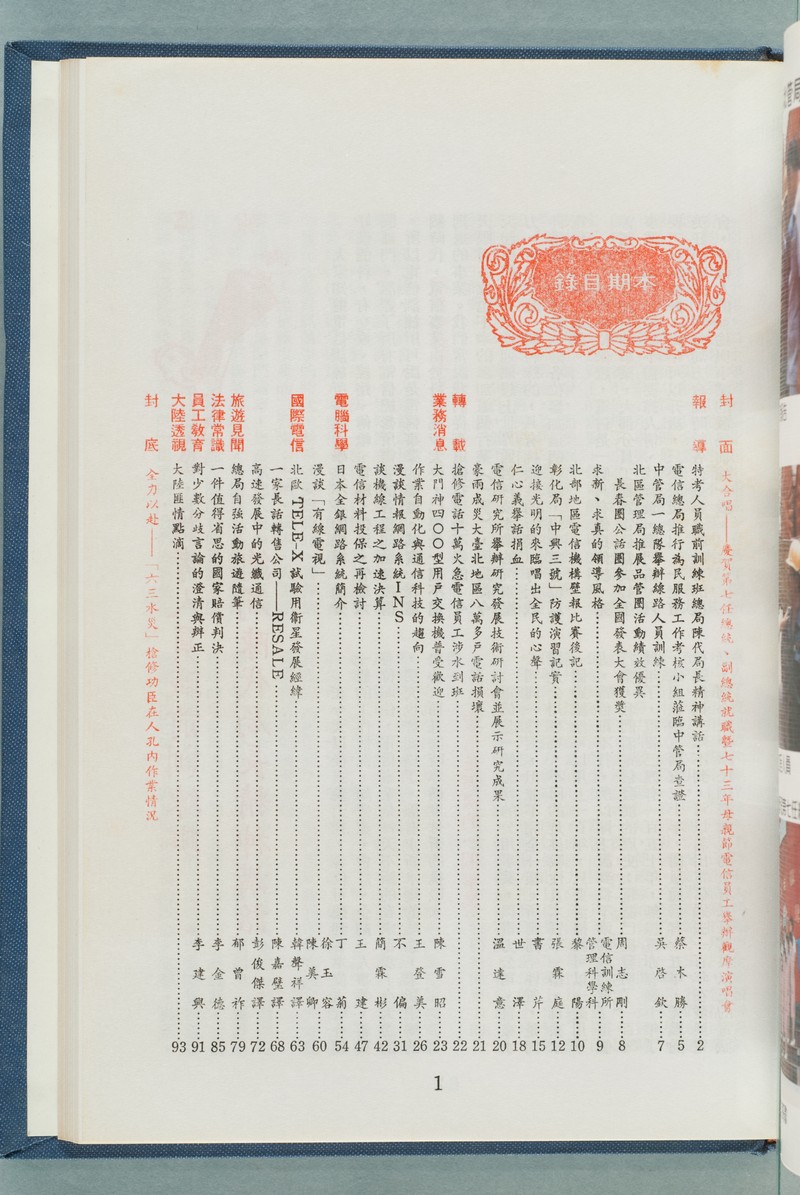 本期目錄
封面 大合唱——慶賀第七任總統、副總統就職暨七十三年母親節電信員工舉辦觀摩演唱會
報導 特考人員職前訓練班總局陳代局長精神講話 2
電信總局推行為民服務工作考核小組蒞臨中管局查證 蔡木勝 5
中管局一總隊舉辦線路人員訓練 吳啓欽 7
北區管理局推展品管圈活動績效優異
長春圈公誥圈參加全國發表大會獲獎 周志剛 8
求新、求真的領導風格 電信訓練所管理科學科 9
北部地區電信機構壁報比賽後記 黎陽 10
彰化局「中興三號」防護演習記實 張霖庭 12
迎接光明的來臨唱出全民的心聲 書芹 15
仁心義舉話捐血 世澤 18
電信研究所舉辦研究發展技術研討會並展示研究成果 溫達意 20
豪雨成災大臺北地區八萬多戶電話損壞 21
轉載 搶修電話十萬火急電信員工涉水到班 22
業務消息 大門神四〇〇型用戶交換機普受歡迎 陳雪昭 23
作業自動化與通信科技的趨向 王登美 26
漫談情報網路系統INS 不偏 31
談機線工程之加速決算 簡霖彬 42
電信材料投保之再檢討 王建 47
電腦科學 日本全銀網路系統簡介 丁菊 54
漫談「有線電視」 徐玉容 陳美卿 60
國際電信 北歐TELE-X試驗用衛星發展經緯 韓聲祥譯 63
一家長話轉售公司——RESALE 陳嘉壁譯 68
高速發展中的光纖通信 彭俊傑譯 72
旅遊見聞 總局自強活動旅遊隨筆 郁曾祚 79
法律常識 一件值得省思的國家賠償判決 李金德 85
員工教育 對少數分歧言論的澄清與辨正 李建興 91
大陸透視 大陸匪情點滴 93
封底 全力以赴——「六三水災」搶修功臣在人孔內作業情況
1